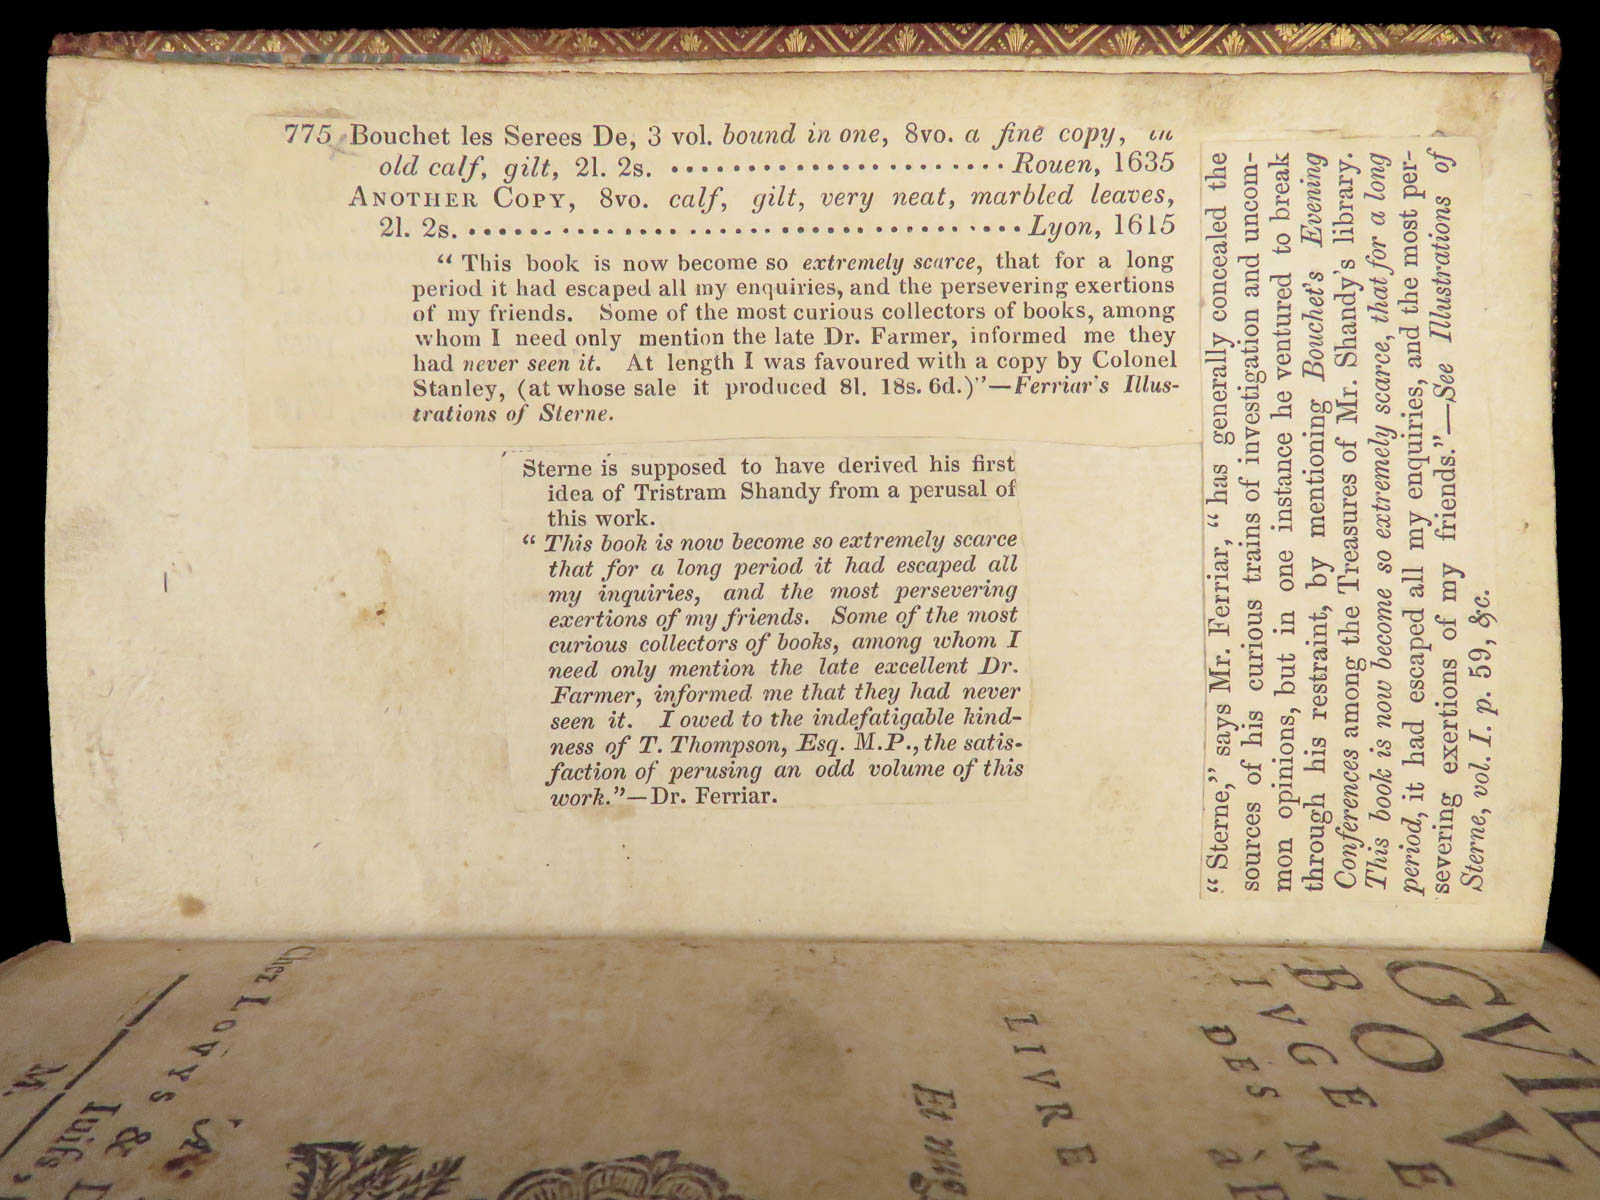 775 Bouchet les Serees De, 3 vol. bound in one, 8vo. a fine copy, in
old calf, gilt, 2l. 2s. ........................ Rouen, 1635
ANOTHER COPY, 8vo. calf, gilt, very neat, marbled leaves,
2l. 2s. ........................................ Lyon, 1615
“ This book is now become so extremely scarce, that for a long
period it had escaped all my enquiries, and the persevering exertions
of my friends. Some of the most curious collectors of books, among
whom I need only mention the late Dr. Farmer, informed me they
had never seen it. At length I was favoured with a copy by Colonel
Stanley, (at whose sale it produced 8l. 18s. 6d.)”—Ferriar's Illus-
trations of Sterne.
Sterne is supposed to have derived his first
idea of Tristram Shandy from a perusal of
this work.
“ This book is now become so extremely scarce
that for a long period it had escaped all
my inquiries, and the most persevering
exertions of my friends. Some of the most
curious collectors of books, among whom I
need only mention the late excellent Dr.
Farmer, informed me that they had never
seen it. I owed to the indefatigable kind-
ness of T. Thompson, Esq. M.P., the satis-
faction of perusing an odd volume of this
work.”—Dr. Ferriar.
“ Sterne,” says Mr. Ferriar, “ has generally concealed the
sources of his curious trains of investigation and uncom-
mon opinions, but in one instance he ventured to break
through his restraint, by mentioning Bouchet's Evening
Conferences among the Treasures of Mr. Shandy's library.
This book is now become so extremely scarce, that for a long
period, it had escaped all my enquiries, and the most per-
severing exertions of my friends.”—See Illustrations of
Sterne, vol. I. p. 59, &c.
GVIL
BOV
IVGE M
DES
LIVRE
Et
Chez LOVYS
Iuifs
M.